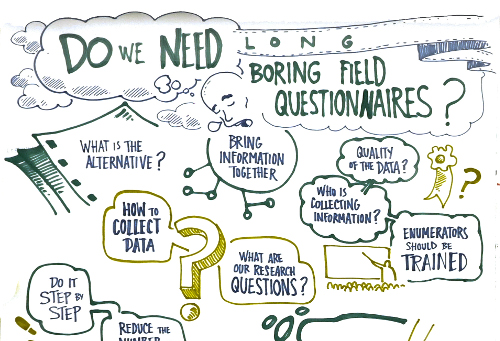 DO WE NEED LONG
BORING FIELD
QUESTIONNAIRES?
WHAT IS THE
ALTERNATIVE?
BRING
INFORMATION
TOGETHER
QUALITY
OF THE DATA?
WHO IS
COLLECTING
INFORMATION?
HOW TO
COLLECT
DATA
WHAT ARE
OUR RESEARCH
QUESTIONS?
ENUMERATORS
SHOULD BE
TRAINED
DO IT
STEP BY
STEP
REDUCE THE
NUMBER